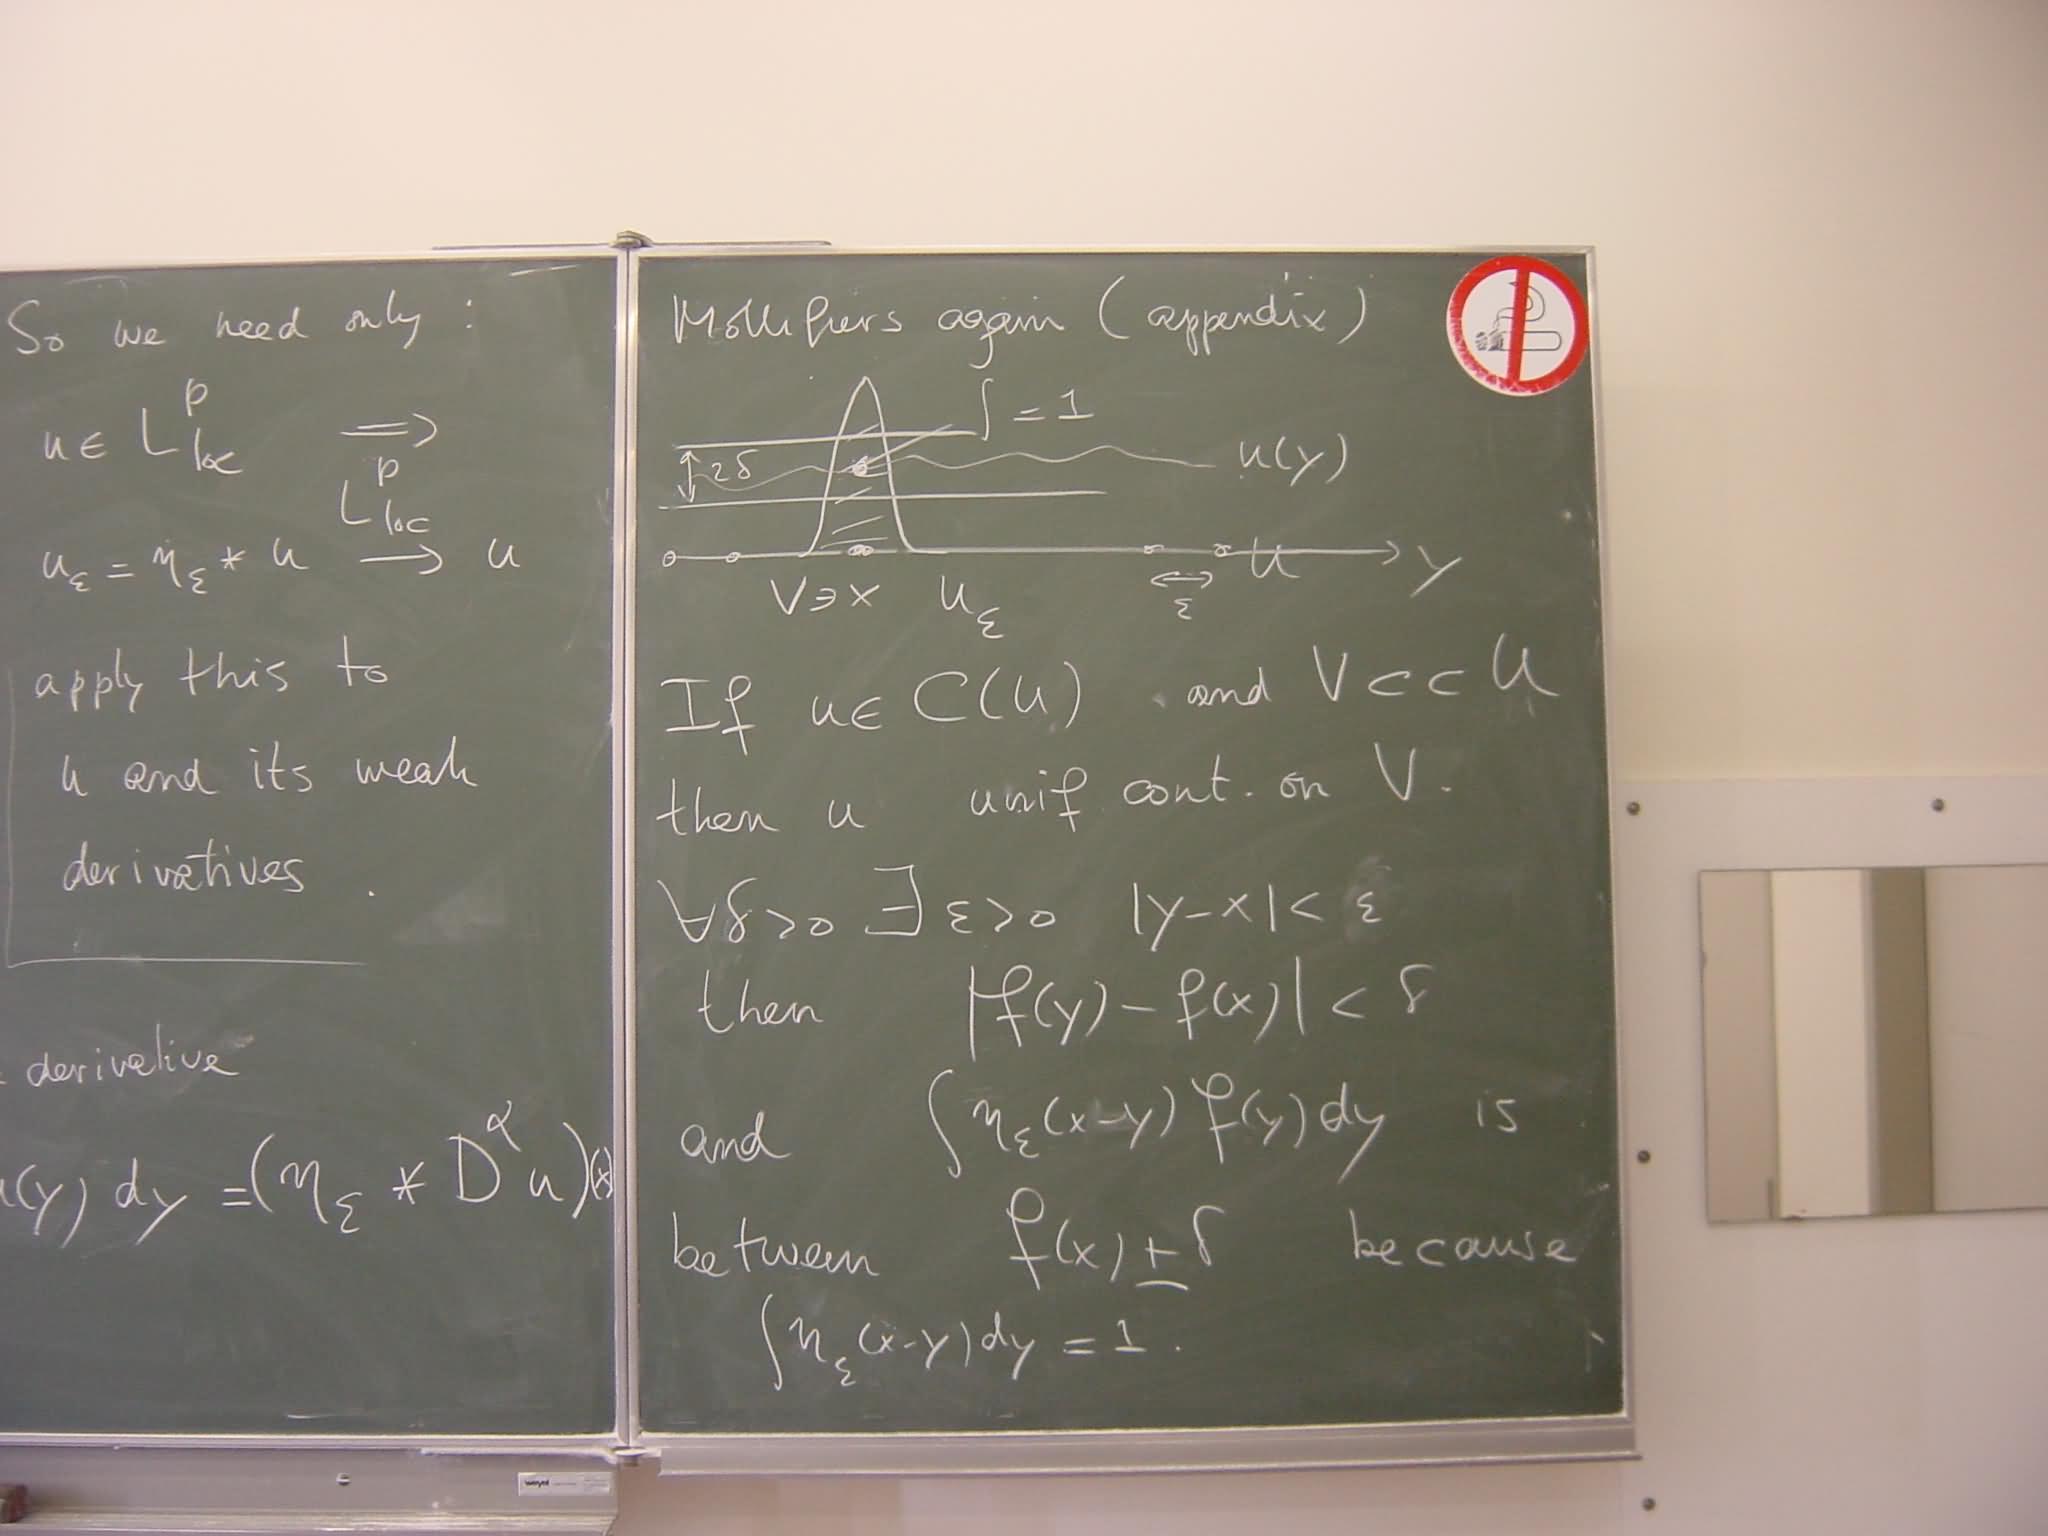 So we need only :
u ∈ L^p_loc ⟹
u_ε = η_ε * u ⟶ (L^p_loc) u
apply this to
u and its weak
derivatives .
derivative
u(y) dy = (η_ε * D^α u)(x)
Mollifiers again (appendix)
∫ = 1
2δ
u(y)
U
y
V∋x U_ε ε
If u ∈ C(U) and V ⊂⊂ U
then u unif. cont. on V.
∀δ>0 ∃ε>0 |y-x|< ε
then |f(y) - f(x)| < δ
and ∫η_ε(x-y) f(y) dy is
between f(x) ± δ because
∫η_ε(x-y)dy = 1 .
weyel